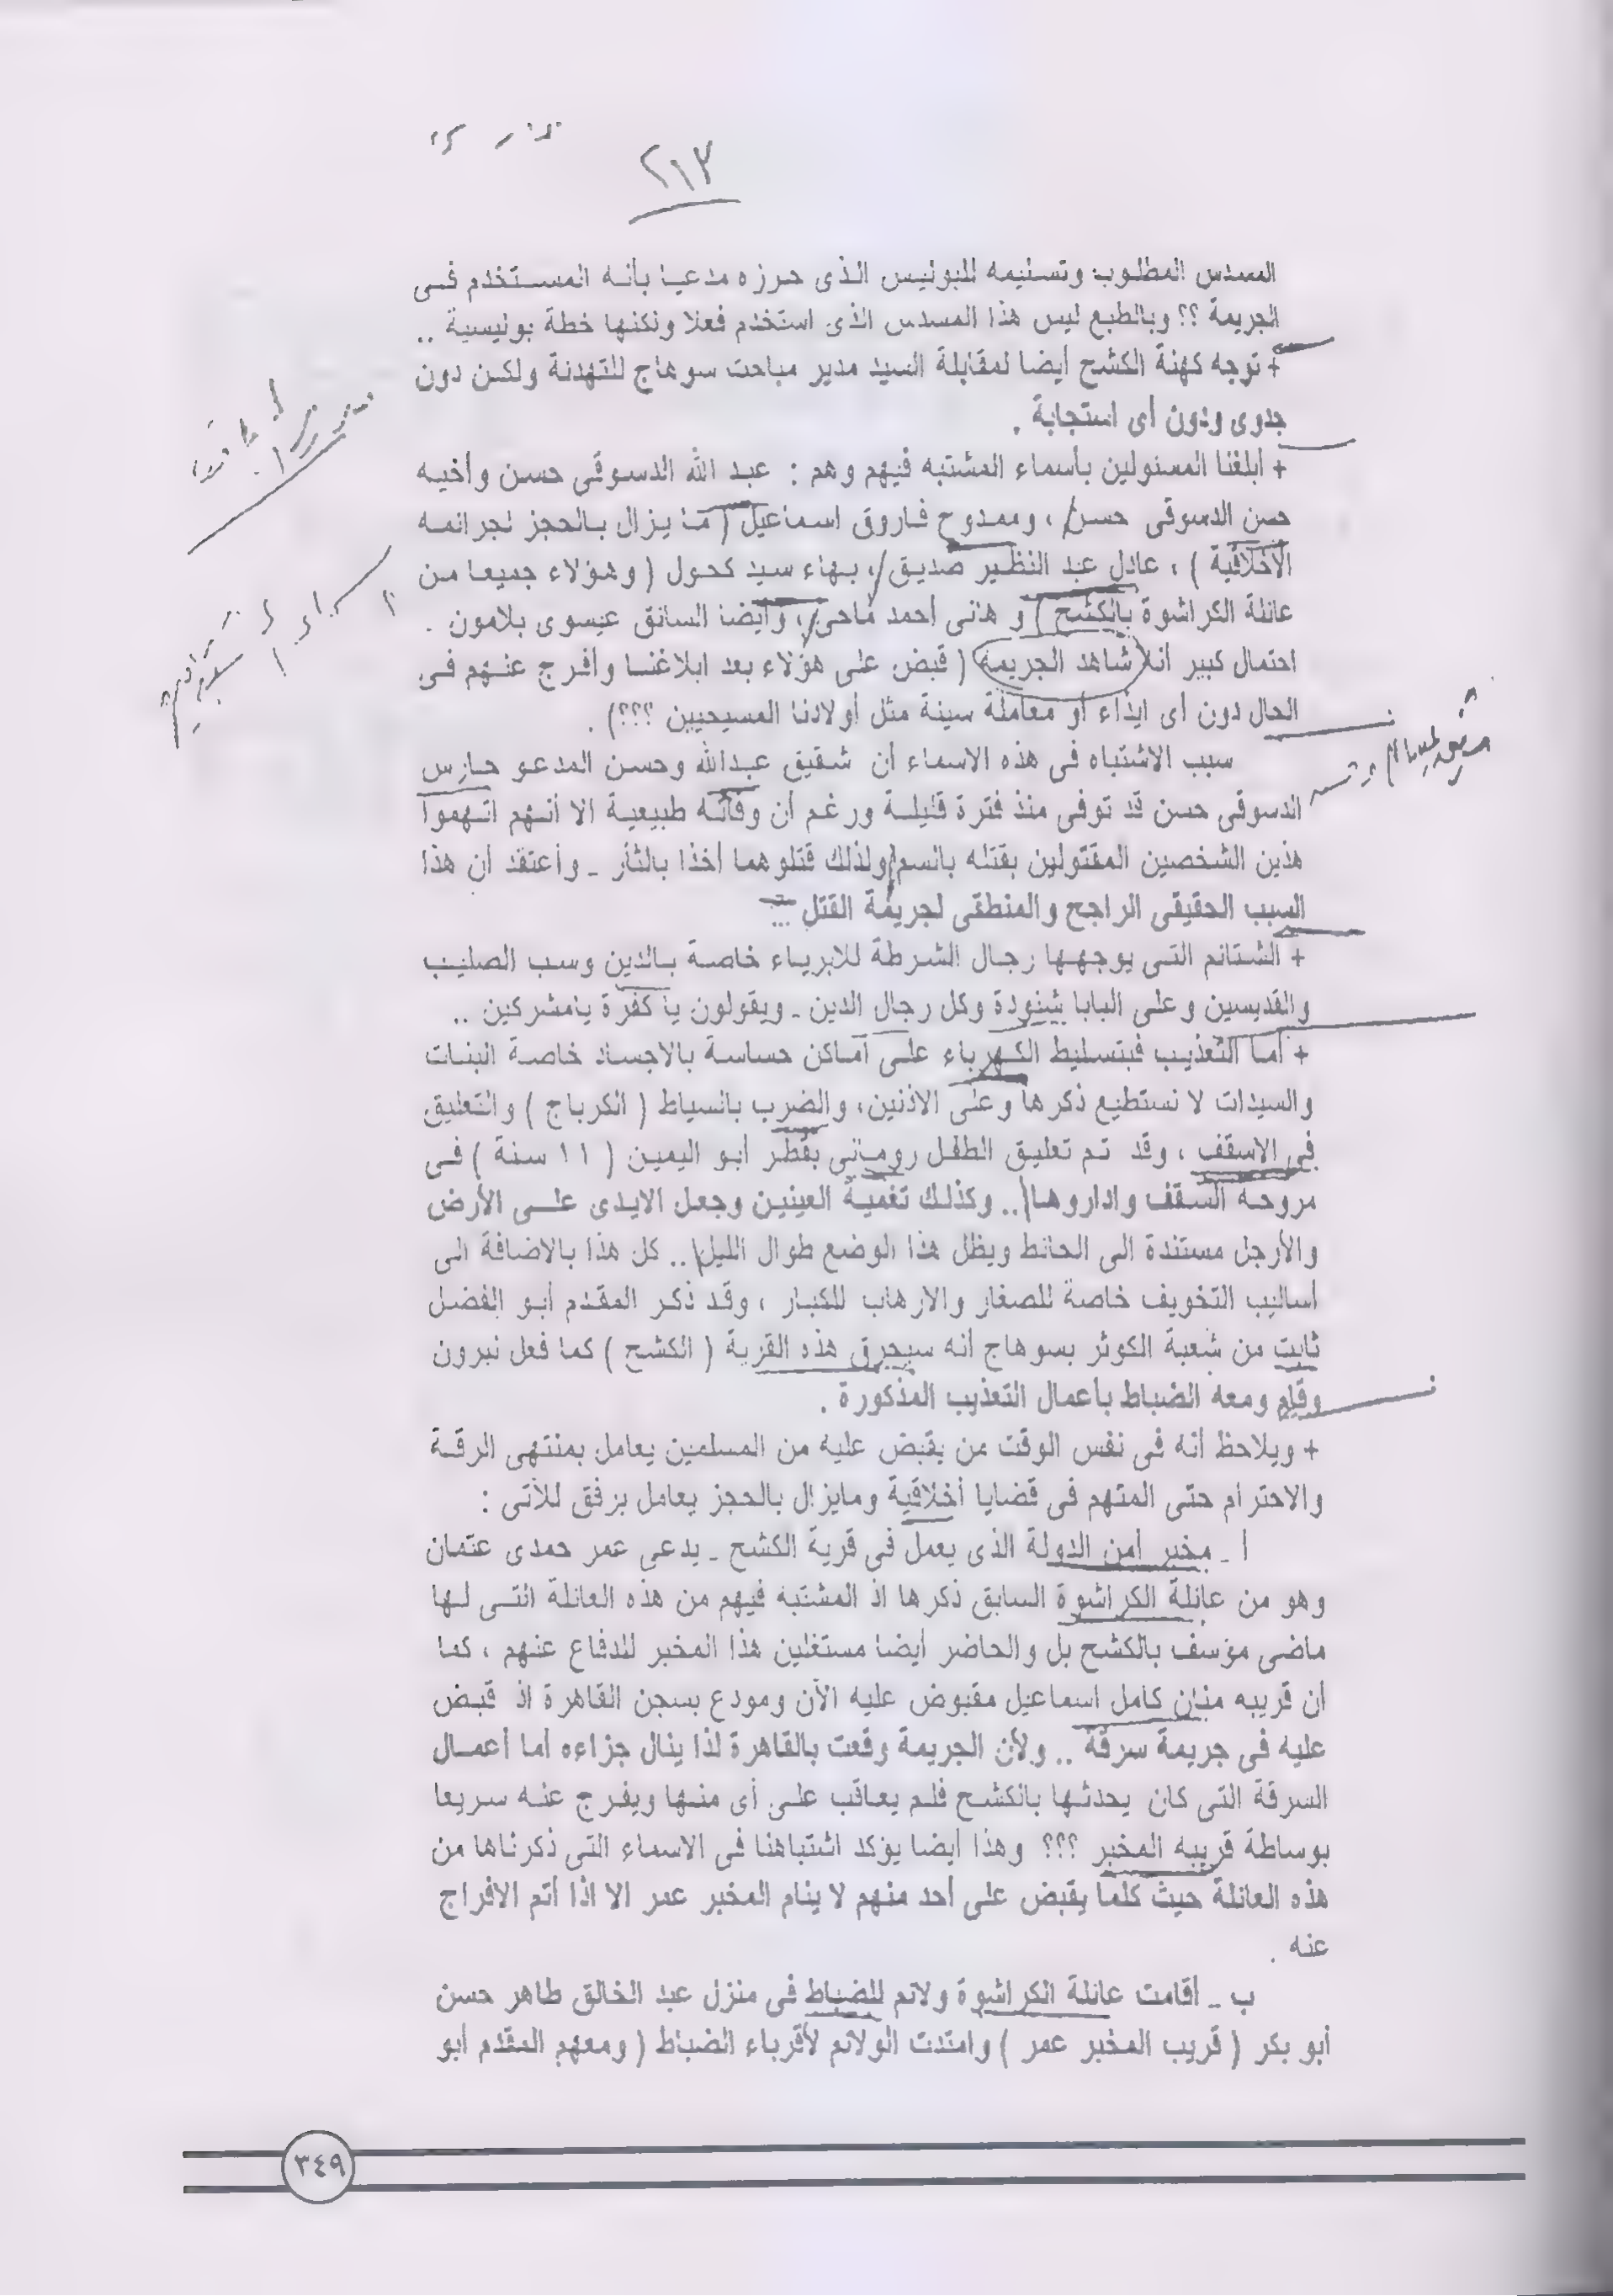 ٢١٣
المسدس المطلوب وتسليمه للبوليس الذى حرزه مدعيا بأنه المستخدم فى
الجريمة ؟؟ وبالطبع ليس هذا المسدس الذى استخدم فعلا ولكنها خطة بوليسية ..
+ توجه كهنة الكشح أيضا لمقابلة السيد مدير مباحث سوهاج للتهدئة ولكن دون
جدوى ودون أى استجابة .
+ أبلغنا المسئولين بأسماء المشتبه فيهم وهم : عبد الله الدسوقى حسن وأخيه
حسن الدسوقى حسن ، وممدوح فاروق اسماعيل ( ما يزال بالحجز لجرائمه
الأخلاقية ) ، عادل عبد النظير صديق ، بهاء سيد كحول ( وهؤلاء جميعا من
عائلة الكراشوة بالكشح ) و هانى أحمد ماحى ، وأيضا السائق عيسوى بلامون .
احتمال كبير أنه شاهد الجريمة ( قبض على هؤلاء بعد ابلاغنا وأفرج عنهم فى
الحال دون أى ايذاء أو معاملة سيئة مثل أولادنا المسيحيين ؟؟؟) .
سبب الاشتباه فى هذه الاسماء أن شقيق عبدالله وحسن المدعو حارس
الدسوقى حسن قد توفى منذ فترة قليلة ورغم أن وفاته طبيعية الا أنهم اتهموا
هذين الشخصين المقتولين بقتله بالسم ولذلك قتلوهما أخذا بالثأر ـ وأعتقد أن هذا
السبب الحقيقى الراجح والمنطقى لجريمة القتل ...
+ الشتائم التى يوجهها رجال الشرطة للابرياء خاصة بالدين وسب الصليب
والقديسين وعلى البابا شنودة وكل رجال الدين ـ ويقولون يا كفرة يامشركين ..
+ أما التعذيب فبتسليط الكهرباء على أماكن حساسة بالاجساد خاصة البنات
والسيدات لا نستطيع ذكرها وعلى الاذنين، والضرب بالسياط ( الكرباج ) والتعليق
فى الاسقف ، وقد تم تعليق الطفل رومانى بقطر أبو اليمين ( ١١ سنة ) فى
مروحة السقف واداروها .. وكذلك تغمية العينين وجعل الايدى على الأرض
والأرجل مستندة الى الحائط ويظل هذا الوضع طوال الليل .. كل هذا بالاضافة الى
أساليب التخويف خاصة للصغار والارهاب للكبار ، وقد ذكر المقدم أبو الفضل
ثابت من شعبة الكوثر بسوهاج أنه سيحرق هذه القرية ( الكشح ) كما فعل نيرون
وقام ومعه الضباط بأعمال التعذيب المذكورة .
+ ويلاحظ أنه فى نفس الوقت من يقبض عليه من المسلمين يعامل بمنتهى الرقة
والاحترام حتى المتهم فى قضايا أخلاقية ومايزال بالحجز يعامل برفق للآتى :
أ ـ مخبر أمن الدولة الذى يعمل فى قرية الكشح ـ يدعى عمر حمدى عتمان
وهو من عائلة الكراشوة السابق ذكرها اذ المشتبه فيهم من هذه العائلة التى لها
ماضى مؤسف بالكشح بل والحاضر أيضا مستغلين هذا المخبر للدفاع عنهم ، كما
أن قريبه منان كامل اسماعيل مقبوض عليه الآن ومودع بسجن القاهرة اذ قبض
عليه فى جريمة سرقة .. ولأن الجريمة وقعت بالقاهرة لذا ينال جزاءه أما أعمال
السرقة التى كان يحدثها بالكشح فلم يعاقب على أى منها ويفرج عنه سريعا
بوساطة قريبه المخبر ؟؟؟ وهذا أيضا يؤكد اشتباهنا فى الاسماء التى ذكرناها من
هذه العائلة حيث كلما يقبض على أحد منهم لا ينام المخبر عمر الا اذا أتم الافراج
عنه .
ب ـ أقامت عائلة الكراشوة ولائم للضباط فى منزل عبد الخالق طاهر حسن
أبو بكر ( قريب المخبر عمر ) وامتدت الولائم لأقرباء الضباط ( ومعهم المقدم أبو
٣٤٩